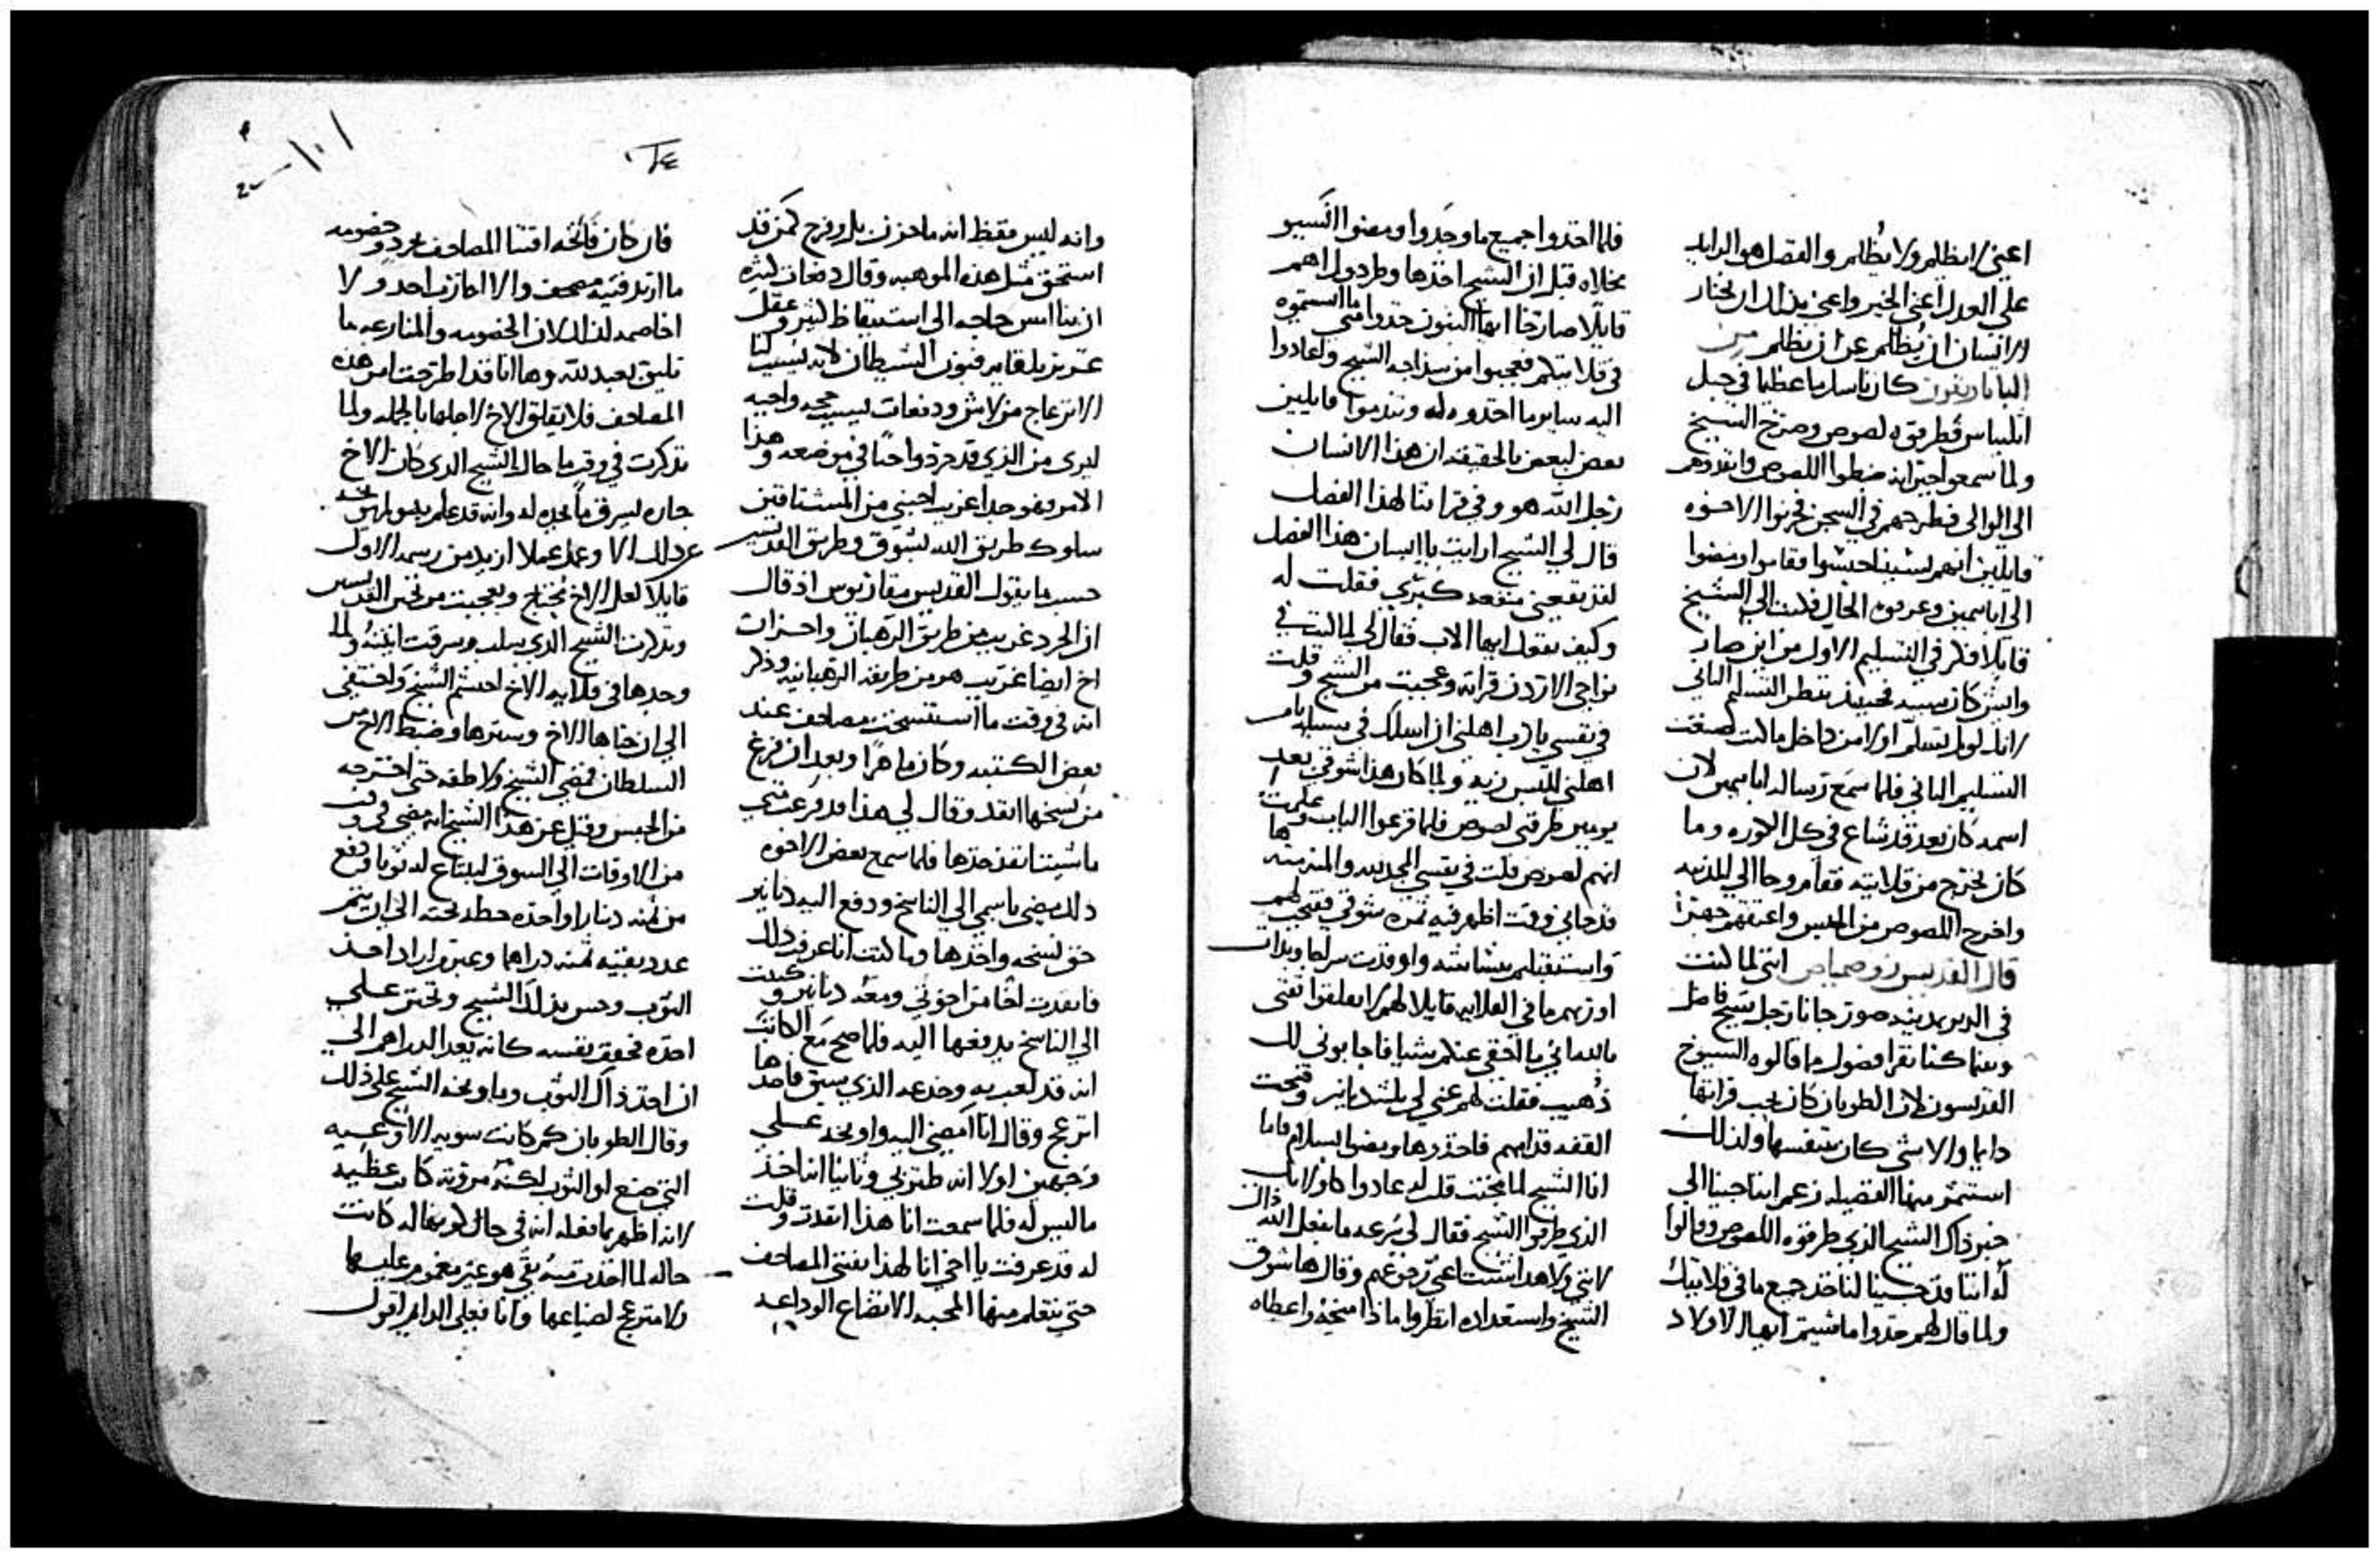 اعني لا يظلم ولا يُظلم والفضل هو الزايد
على العدل اعني الخير واعني بذلك ان يختار
الانسان ان يُظلم عن ان يظلم من
البابا كان ناسكا ما عظيما في جبل
فطرقوه لصوص وصرخ الشيخ
ولما سمعوا جيرانه ضبطوا اللصوص وانفذوهم
الى الوالي فطرحهم في السجن فحزنوا الاخوه
قايلين انهم بسببنا احبسوا فقاموا ومضوا
الى ابا بيمين وعرفوه الحال فكتب الى الشيخ
قايلا فكر في التسليم الاول من اين صار
وايش كان سببه فحينيذ تنظر التسليم الثاني
لانك لو لم تسلم اولا من داخل ما كنت صنعت
التسليم الثاني فلما سمع رساله ابا بيمين لان
اسمه كان بعد قد شاع في كل الكوره وما
كان يخرج من قلايته فقام وجا الى المدينه
واخرج اللصوص من الحبس واعتقهم جهرا
قال القديس انني لما كنت
في الدير جانا رجل شيخ فاضل
وبينما كنا نقرا فصول ما قالوه الشيوخ
القديسون لان الطوبان كان يحب قراتها
دايما والاشي كان يتنفسها ولذلك
استثمر منها الفضيله زعم اننا جينا الى
خبر ذاك الشيخ الذي طرقوه اللصوص وقالوا
له اننا قد جينا لناخذ جميع ما في قلايتك
ولما قال لهم خذوا ما شيتم ايها الاولاد
فلما اخذوا جميع ما وجدوا ومضوا انسيو
مخلاه قبل ان الشيخ اخذها وطرد وراهم
قايلا صارخا ايها البنون خذوا مني ما انسيتموه
في قلايتكم فعجبوا من سذاجه الشيخ واعادوا
اليه ساير ما اخذوه له وتندموا قايلين
بعض لبعض بالحقيقه ان هذا الانسان
رجل الله هو وفي قراتنا لهذا الفصل
قال لي الشيخ ارايت يا انسان هذا الفصل
لقد نفعني منفعه كبرى فقلت له
وكيف نفعك ايها الاب فقال لي لما كنت في
نواحي الاردن قراته وعجبت من الشيخ وقلت
في نفسي يا رب اهلني ان اسلك في سبيله يامن
اهلني للبس زيه ولما كان هذا شوقي بعد
يومين طرقني لصوص فلما قرعوا الباب وعلمت
انهم لصوص قلت في نفسي المجد لله والمنه منه ها
قد جاني وقت اظهر فيه ثمره شوقي ففتحت لهم
واستقبلتهم ببشاشه واوقدت سراجا وبدات
اوريهم ما في القلايه قايلا لهم لا تقلقوا ثقتي
بالله اني ما اخفي عنكم شيا فاجابوني لك
ذهب فقلت لهم عني لي ثلثه دنانير وفتحت
القفه قدامهم فاخذوها ومضوا بسلام فاما
انا الشيخ لما مجنت قلت له عادوا كاوليك
الذي طرقوا الشيخ فقال لي بسرعه ما يفعل الله ذاك
لانني ولا هذا اشتهيت اعني رجوعهم وقال ها شوق
الشيخ واستعداده انظروا ماذا منحه واعطاه
١٢٤
وانه ليس فقط انه ما حزن بل وفرح كمن قد
استحق مثل هذه الموهبه وقال دفعات كثيره
ان بنا امس حاجه الى استيقاظ كثير وعقل
عزيز يلقا به فنون الشيطان لانه يسبب لنا
الانزعاج من لا شي ودفعات ليسبب حجه واجبه
ليرى من الذي قد حرد واحتا في موضعه وهذا
الامر فهو جدا غريب اجنبي من المشتاقين
سلوك طريق الله بشوق وطريق القديسين
حسب ما يقول القديس مقاريوس اذ قال
ان الحرد غريب من طريق الرهبان واحزان
اخ ايضا غريب هو من طريقه الرهبانيه وذكر
انه في وقت ما استنسخت مصاحف عند
بعض الكتبه وكان ماهرا وبعد ان فرغ
من نسخها انفذ وقال لي هذا قد فرغت متي
ما شيت انفذ خذها فلما سمع بعض الاخوه
ذلك مضي باسمي الى الناسخ ودفع اليه دنانير
حق نسخه واخذها وما كنت انا عرفت ذلك
فانفذت اخا من اخوتي ومعه دنانير وكتبت
الى الناسخ يدفعها اليه فلما صح مع الكاتب
انه قد لعب به وخدعه الذي سبق فاخذها
انزعج وقال انا امضي اليه واوبخه على
وجهين اولا انه طنز بي وثانيا انه اخذ
ما ليس له فلما سمعت انا هذا انفذت وقلت
له قد عرفت يا اخي انا لهذا نقتني المصاحف
حتى نتعلم منها المحبه الاتضاع الوداعه
فان كان فاتحه اقتنا المصاحف حرد وخصومه
ما اريد قنيه مصحف والا احازن احد ولا
اخاصمه لان الخصومه والمنازعه ما
تليق بعبد لله وها انا قد اطرحت امر هذه
المصاحف فلا يقلق الاخ لاجلها بالجمله ولما
تذكرت في وقت ما حال الشيخ الذي كان الاخ
جاره يسرق ما يجده له وانه قد علم به ولم يوبخه
عن ذلك الا وعمل عملا ازيد من رسمه الاول
قايلا لعل الاخ محتاج وتعجبت من تحنن القديسين
وتذكرت الشيخ الذي سلب وسرقت انيته ولما
وجدها في قلايه الاخ احتشم الشيخ واختفى
الى ان خباها الاخ وسترها وضبط الاخ من
السلطان فمضي الشيخ ولاطفه حتى اخرجه
من الحبس وقيل عن هذا الشيخ انه مضى في وقت
من الاوقات الى السوق ليبتاع له ثوبا ودفع
من ثمنه دينارا واحده حطه تحته الى ان يتم
عدد بقيه ثمنه دراهما وعبر اراد اخذ
الثوب وحس بذلك الشيخ وتحنن على
اخذه فحقق بنفسه كانه يعد الدراهم الى
ان اخذ ذاك الثوب وما وبخه الشيخ على ذلك
وقال الطوبان كم كانت سويه الاوعيه
التي ضيع او الثوب لكنه مروته كانت عظيمه
لانه اظهر بما فعله انه في حال كونها له كانت
حاله لما اخذت منه بقي هو غير مغموم عليها
ولا منزعج لضياعها وانا فعلى الدايم اقول